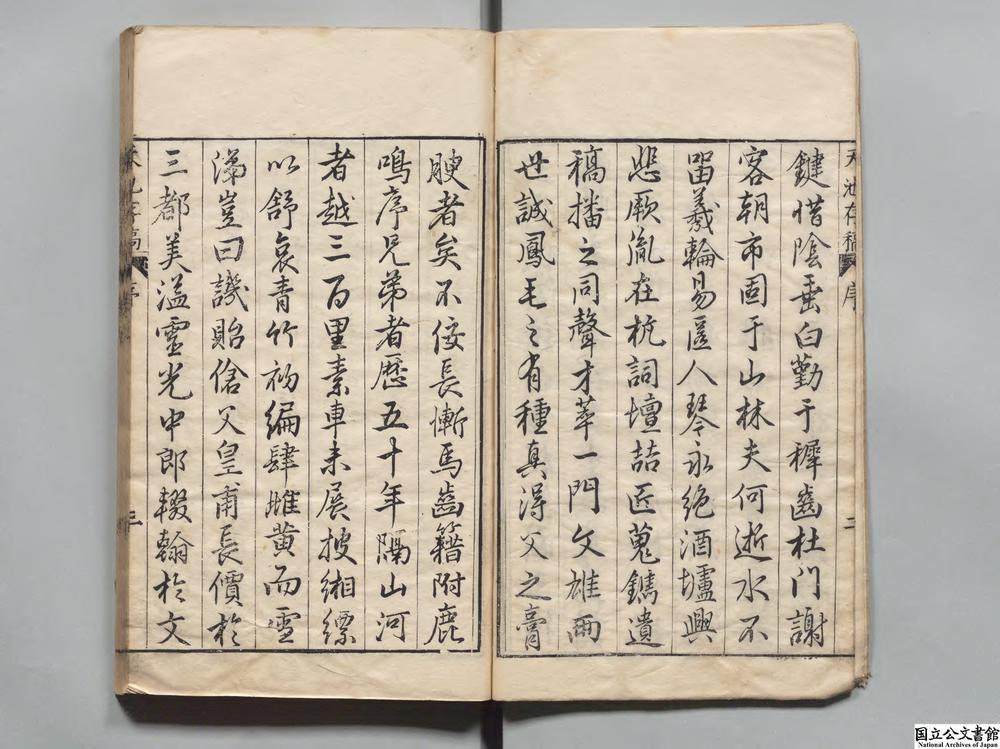 天池存稿 序 三
鍵惜陰垂白勤于穉齒杜門謝
客朝市固于山林夫何逝水不
畱羲輪易匿人琴永絶酒壚興
悲厥胤在杭詞壇喆匠蒐鐫遺
稿播之同聲才萃一門文雄兩
世誠鳳毛之有種真得父之膏
腴者矣不佞長慚馬齒籍附鹿
鳴序兄弟者歷五十年隔山河
者越三百里素車未展披緗縹
以舒哀青竹初編肆雌黃而雪
涕豈曰譏貽傖父皇甫長價於
三都美溢靈光中郎輟翰於文
天池存稿 序
国立公文書館
National Archives of Japan